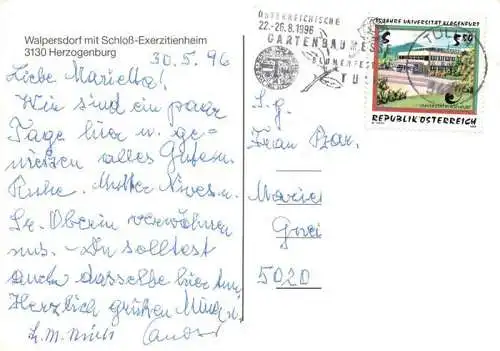 Walpersdorf mit Schloß-Exerzitienheim
3130 Herzogenburg
30.5.96
Liebe Marietta!
Wir sind ein paar
Tage hier u. ge-
nießen alles Gute u.
Ruhe. Mutter Nives u.
Sr. Oberin verwöhnen
uns. – Du solltest
auch dasselbe hier tun.
Herzlich grüßen
ÖSTERREICHISCHE
22.-26.8.1996
GARTENBAUMESSE
BLUMENFEST
TUL
TUL
25 JAHRE UNIVERSITÄT KLAGENFURT
S 5.50
REPUBLIK ÖSTERREICH
S.g.
Frau
Marie
5020